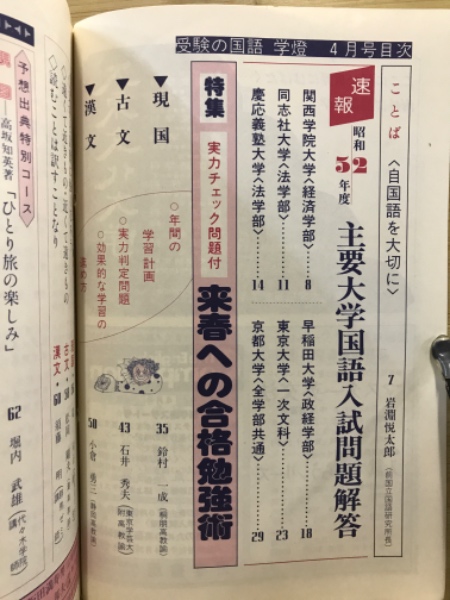 受験の国語 学燈 4月号目次
ことば 〈自国語を大切に〉 7 岩淵悦太郎 (前国立国語研究所長)
速報 昭和52年度 主要大学国語入試問題解答
関西学院大学〈経済学部〉……8
同志社大学〈法学部〉……11
慶応義塾大学〈法学部〉……14
早稲田大学〈政経学部〉……18
東京大学〈一次文科〉……23
京都大学〈全学部共通〉……29
特集 実力チェック問題付 来春への合格勉強術
○年間の
学習計画
○実力判定問題
○効果的な学習の
進め方
▼現国 35 鈴村一成
▼古文 43 石井秀夫 (東京学芸大附高教諭)
▼漢文 50 小倉勇三
〈遠くて近きもの近くて遠きもの
〈読むことは訳すことなり
古文・
漢文・60
予想出典特別コース
高坂知英著「ひとり旅の楽しみ」 62 堀内武雄 (代々木学院講師)